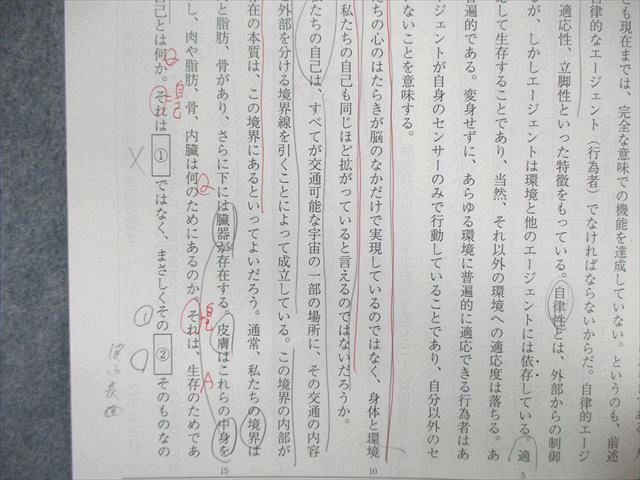 も現在までは、完全な意味での機能を達成していない。というのも、前述
自律的なエージェント（行為者）でなければならないからだ。自律的エージ
適応性、立脚性といった特徴をもっている。自律性とは、外部からの制御
が、しかしエージェントは環境と他のエージェントには依存している。適
応して生存することであり、当然、それ以外の環境への適応度は落ちる。あ
普遍的である。変身せずに、あらゆる環境に普遍的に適応できる行為者はあ
ジェントが自身のセンサーのみで行動していることであり、自分以外のセ
ないことを意味する。
ちの心のはたらきが脳のなかだけで実現しているのではなく、身体と環境
私たちの自己も同じほど拡がっていると言えるのではないだろうか。
たちの自己は、すべてが交通可能な宇宙の一部の場所に、その交通の内容
外部を分ける境界線を引くことによって成立している。この境界の内部が
在の本質は、この境界にあるといってよいだろう。通常、私たちの境界は
と脂肪、骨があり、さらに下には臓器が存在する。皮膚はこれらの中身を
し、肉や脂肪、骨、内臓は何のためにあるのか。それは、生存のためであ
自己とは何か。それは ① ではなく、まさしくその ② そのものなの
5
10
15
Q
自己
Q
A
①